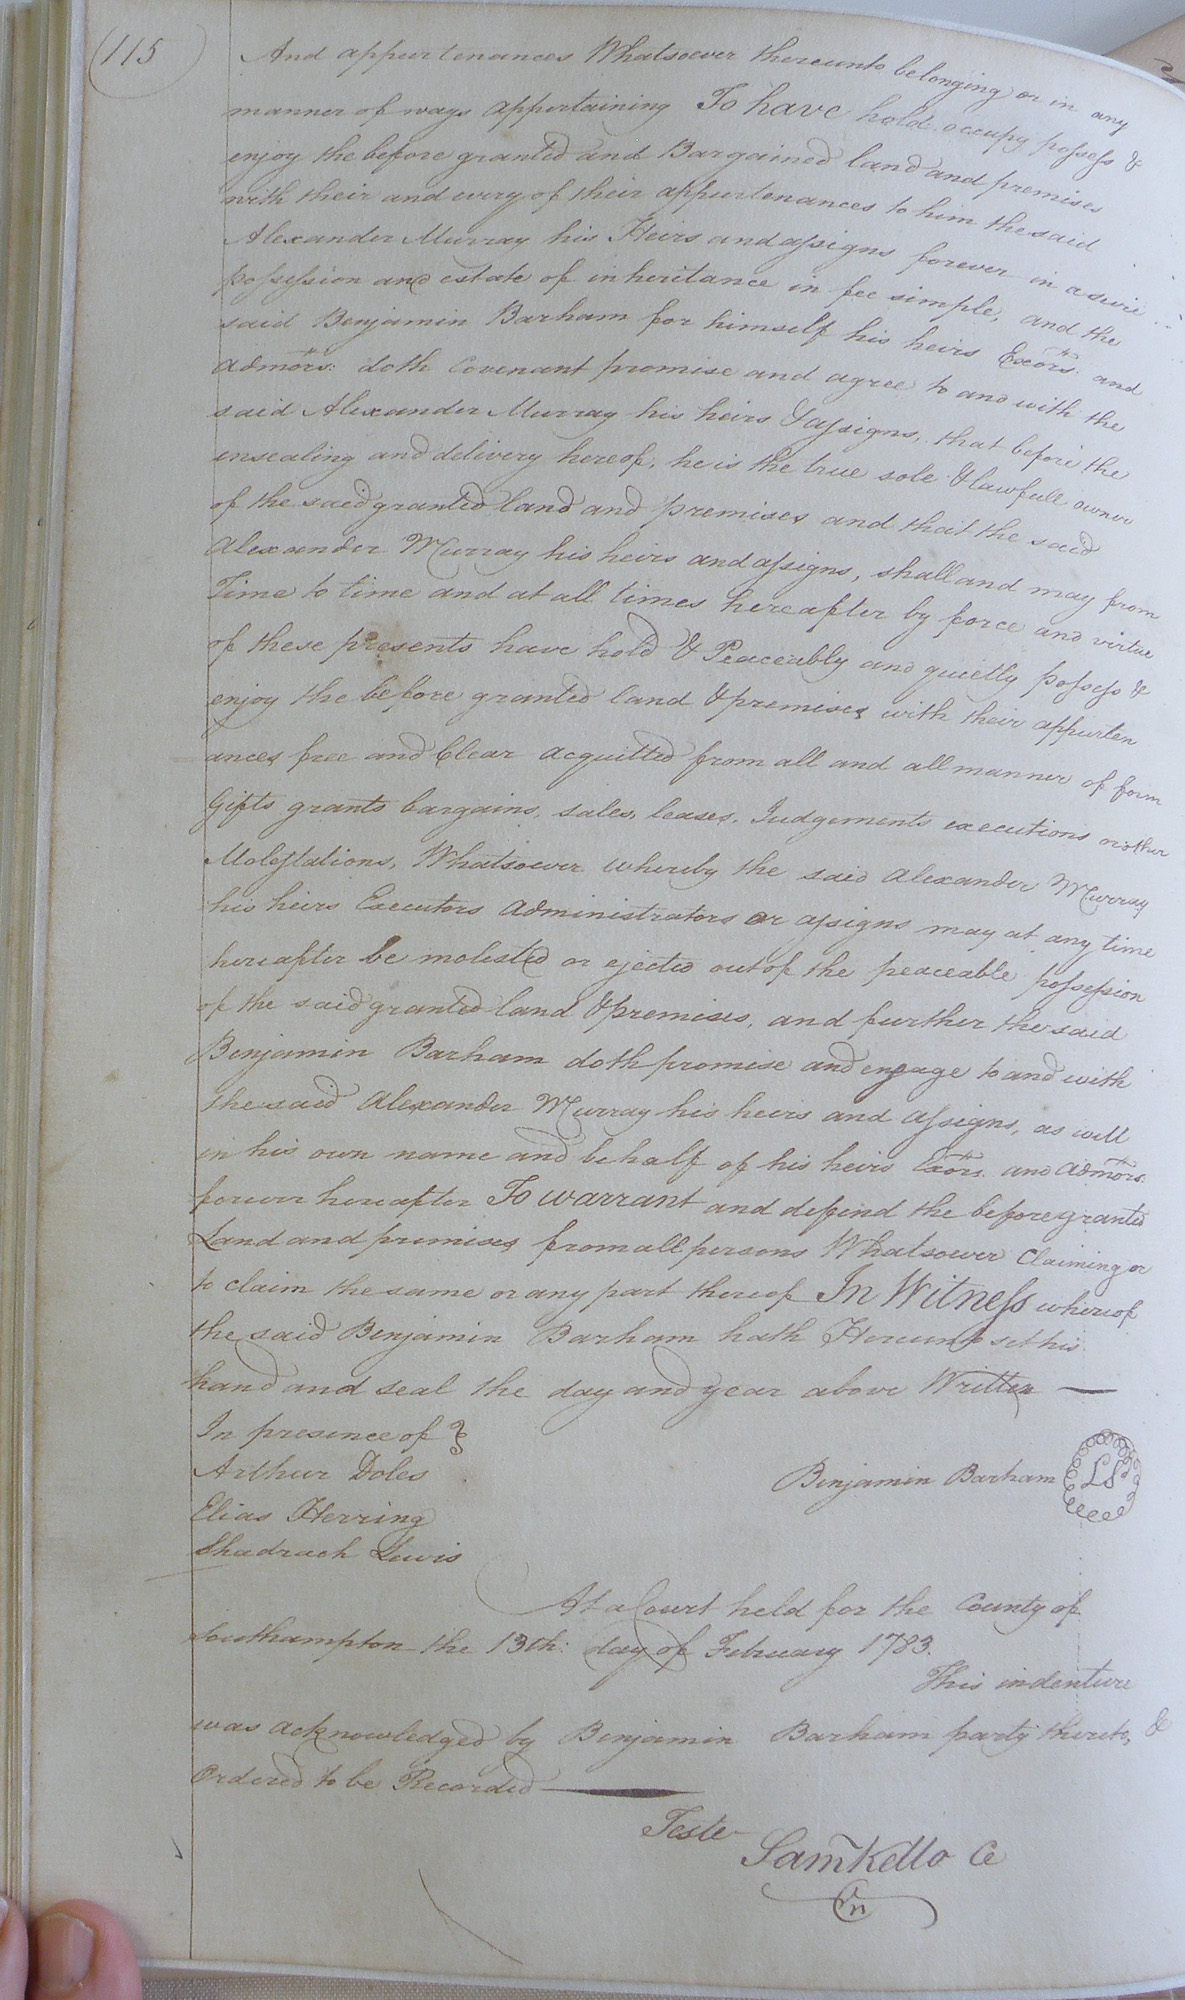 115
And appurtenances Whatsoever thereunto belonging or in any
manner of ways appertaining To have hold occupy possess &
enjoy the before granted and Bargained land and premises
with their and every of their appurtenances to him the said
Alexander Murray his Heirs and assigns forever in a sure
possession and estate of inheritance in fee simple, and the
said Benjamin Barham for himself his heirs Exors. and
Admors: doth Covenant promise and agree to and with the
said Alexander Murray his heirs & assigns, that before the
ensealing and delivery hereof, he is the true sole & lawfull owner
of the said granted land and premises and that the said
Alexander Murray his heirs and assigns, shall and may from
Time to time and at all times hereafter by force and virtue
of these presents have hold & Peaceably and quietly possess &
enjoy the before granted land & premises with their appurten
ances free and Clear acquitted from all and all manner of form
Gifts grants bargains, sales, leases, Judgements executions or other
Molestations, Whatsoever whereby the said Alexander Murray
his heirs Executors Administrators or assigns may at any time
hereafter be molested or ejected out of the peaceable possession
of the said granted land & premises, and further the said
Benjamin Barham doth promise and engage to and with
the said Alexander Murray his heirs and assigns, as well
in his own name and behalf of his heirs Exors. and Admors.
forever hereafter To warrant and defend the before granted
Land and premises from all persons Whatsoever Claiming or
to claim the same or any part thereof In Witness whereof
the said Benjamin Barham hath Hereunto set his
hand and seal the day and year above Written
In presence of
Arthur Doles
Benjamin Barham LS
Elias Herring
Shadrach Lewis
At a Court held for the County of
Southampton the 13th: day of February 1783.
This indenture
was acknowledged by Benjamin Barham party thereto, &
Ordered to be Recorded
Teste
Saml Kello C
Cn